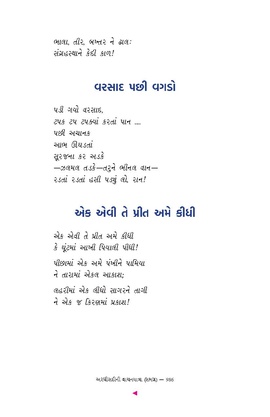 ભાલા, તીર, બખ્તર ને ઢાલ:
સંગ્રહસ્થાને કેદી કાળ!
વરસાદ પછી વગડો
પડી ગયો વરસાદ,
ટપક ટપ ટપક્યાં કરતાં પાન ...
પછી અચાનક
આભ ઊઘડતાં
સૂરજના કર અડકે
—ઝલમલ તડકે—તરુને ભીંજલ વાન—
રડતાં રડતાં હસી પડ્યું લો, રાન!
એક એવી તે પ્રીત અમે કીધી
એક એવી તે પ્રીત અમે કીધી
કે ઘૂંટમાં આખી પિયાલી પીધી!
પીછામાં એક અમે પંખીને પામિયા
ને તારામાં એકલ આકાશ;
લહરીમાં એક લીધો સાગરને તાગી
ને એક જ કિરણમાં પ્રકાશ!